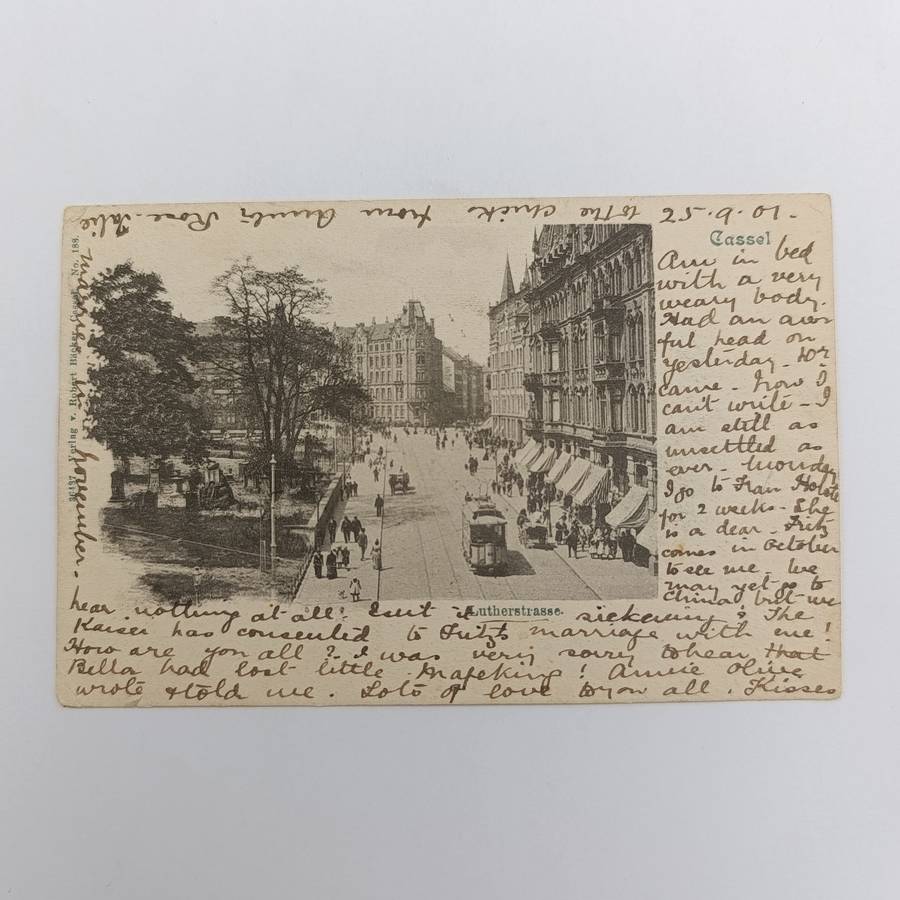 25.9.01-
Cassel
Am in bed
with a very
weary body.
Had an aw-
ful head on
yesterday. Dr
came - Now I
can't write - I
am still as
unsettled as
ever. Monday
I go to Frau
for 2 weeks. She
is a dear. Fritz
comes in October
to see me. We
may yet go to
China but we
hear nothing at all! Isn't it sickening? The
Kaiser has consented to Fritz's marriage with me!
How are you all? I was very sorry to hear that
Bella had lost little Mafeking! Annie Olive
wrote & told me. Lots of love to you all. Kisses
to the chicks from Auntie Rose.
november.
Lutherstrasse.
Verlag v. Robert Bäcker, No. 188.